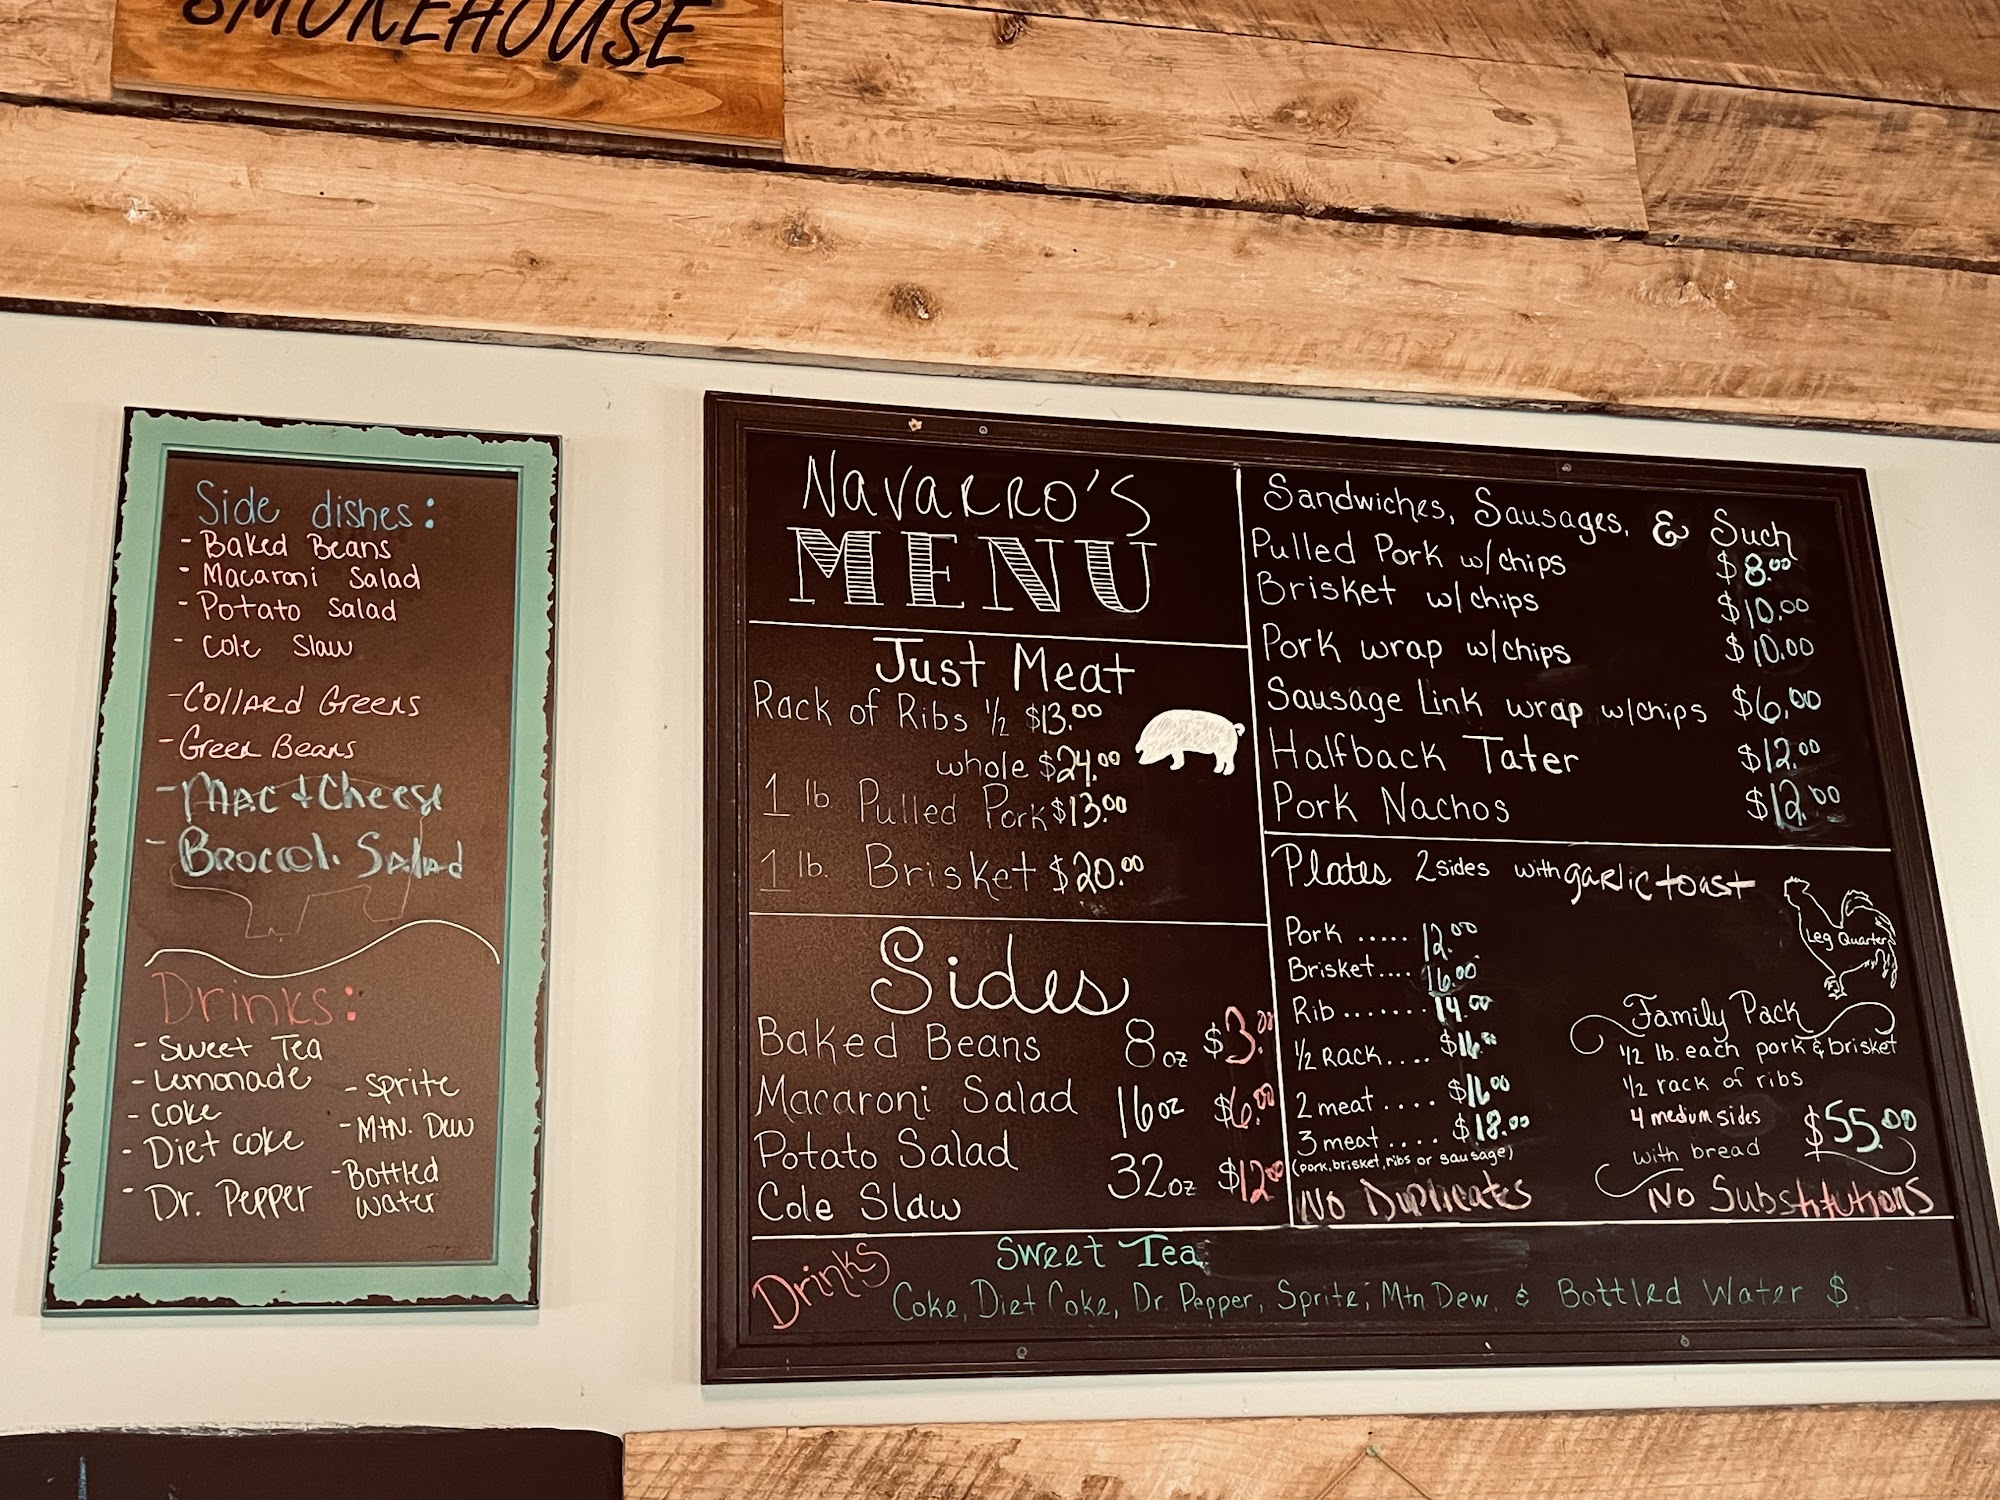 SMOKEHOUSE
Side dishes:
- Baked Beans
- Macaroni Salad
- Potato Salad
- Cole Slaw
- Collard Greens
- Green Beans
- Mac + Cheese
- Broccoli Salad
Drinks:
- Sweet Tea
- Lemonade
- Coke
- Diet Coke
- Dr. Pepper
- Sprite
- Mtn. Dew
- Bottled
Water
Navarro's
MENU
Just Meat
Rack of Ribs 1/2 $13.00
whole $24.00
1 lb. Pulled Pork $13.00
1 lb. Brisket $20.00
Sides
Baked Beans 8oz $3.00
Macaroni Salad 16oz $6.00
Potato Salad
32oz $12.00
Cole Slaw
Sandwiches, Sausages, & Such
Pulled Pork w/chips $8.00
Brisket w/chips $10.00
Pork wrap w/chips $10.00
Sausage Link wrap w/chips $6.00
Halfback Tater $12.00
Pork Nachos $12.00
Plates 2 sides with garlic toast
Pork ..... 12.00
Brisket.... 16.00
Rib....... 14.00
1/2 Rack.... $16.00
2 meat .... $16.00
3 meat .... $18.00
(pork, brisket, ribs or sausage)
No Duplicates
Leg Quarter
Family Pack
1/2 lb. each pork & brisket
1/2 rack of ribs
4 medium sides $55.00
with bread
No Substitutions
Drinks
Sweet Tea
Coke, Diet Coke, Dr. Pepper, Sprite, Mtn. Dew, & Bottled Water $